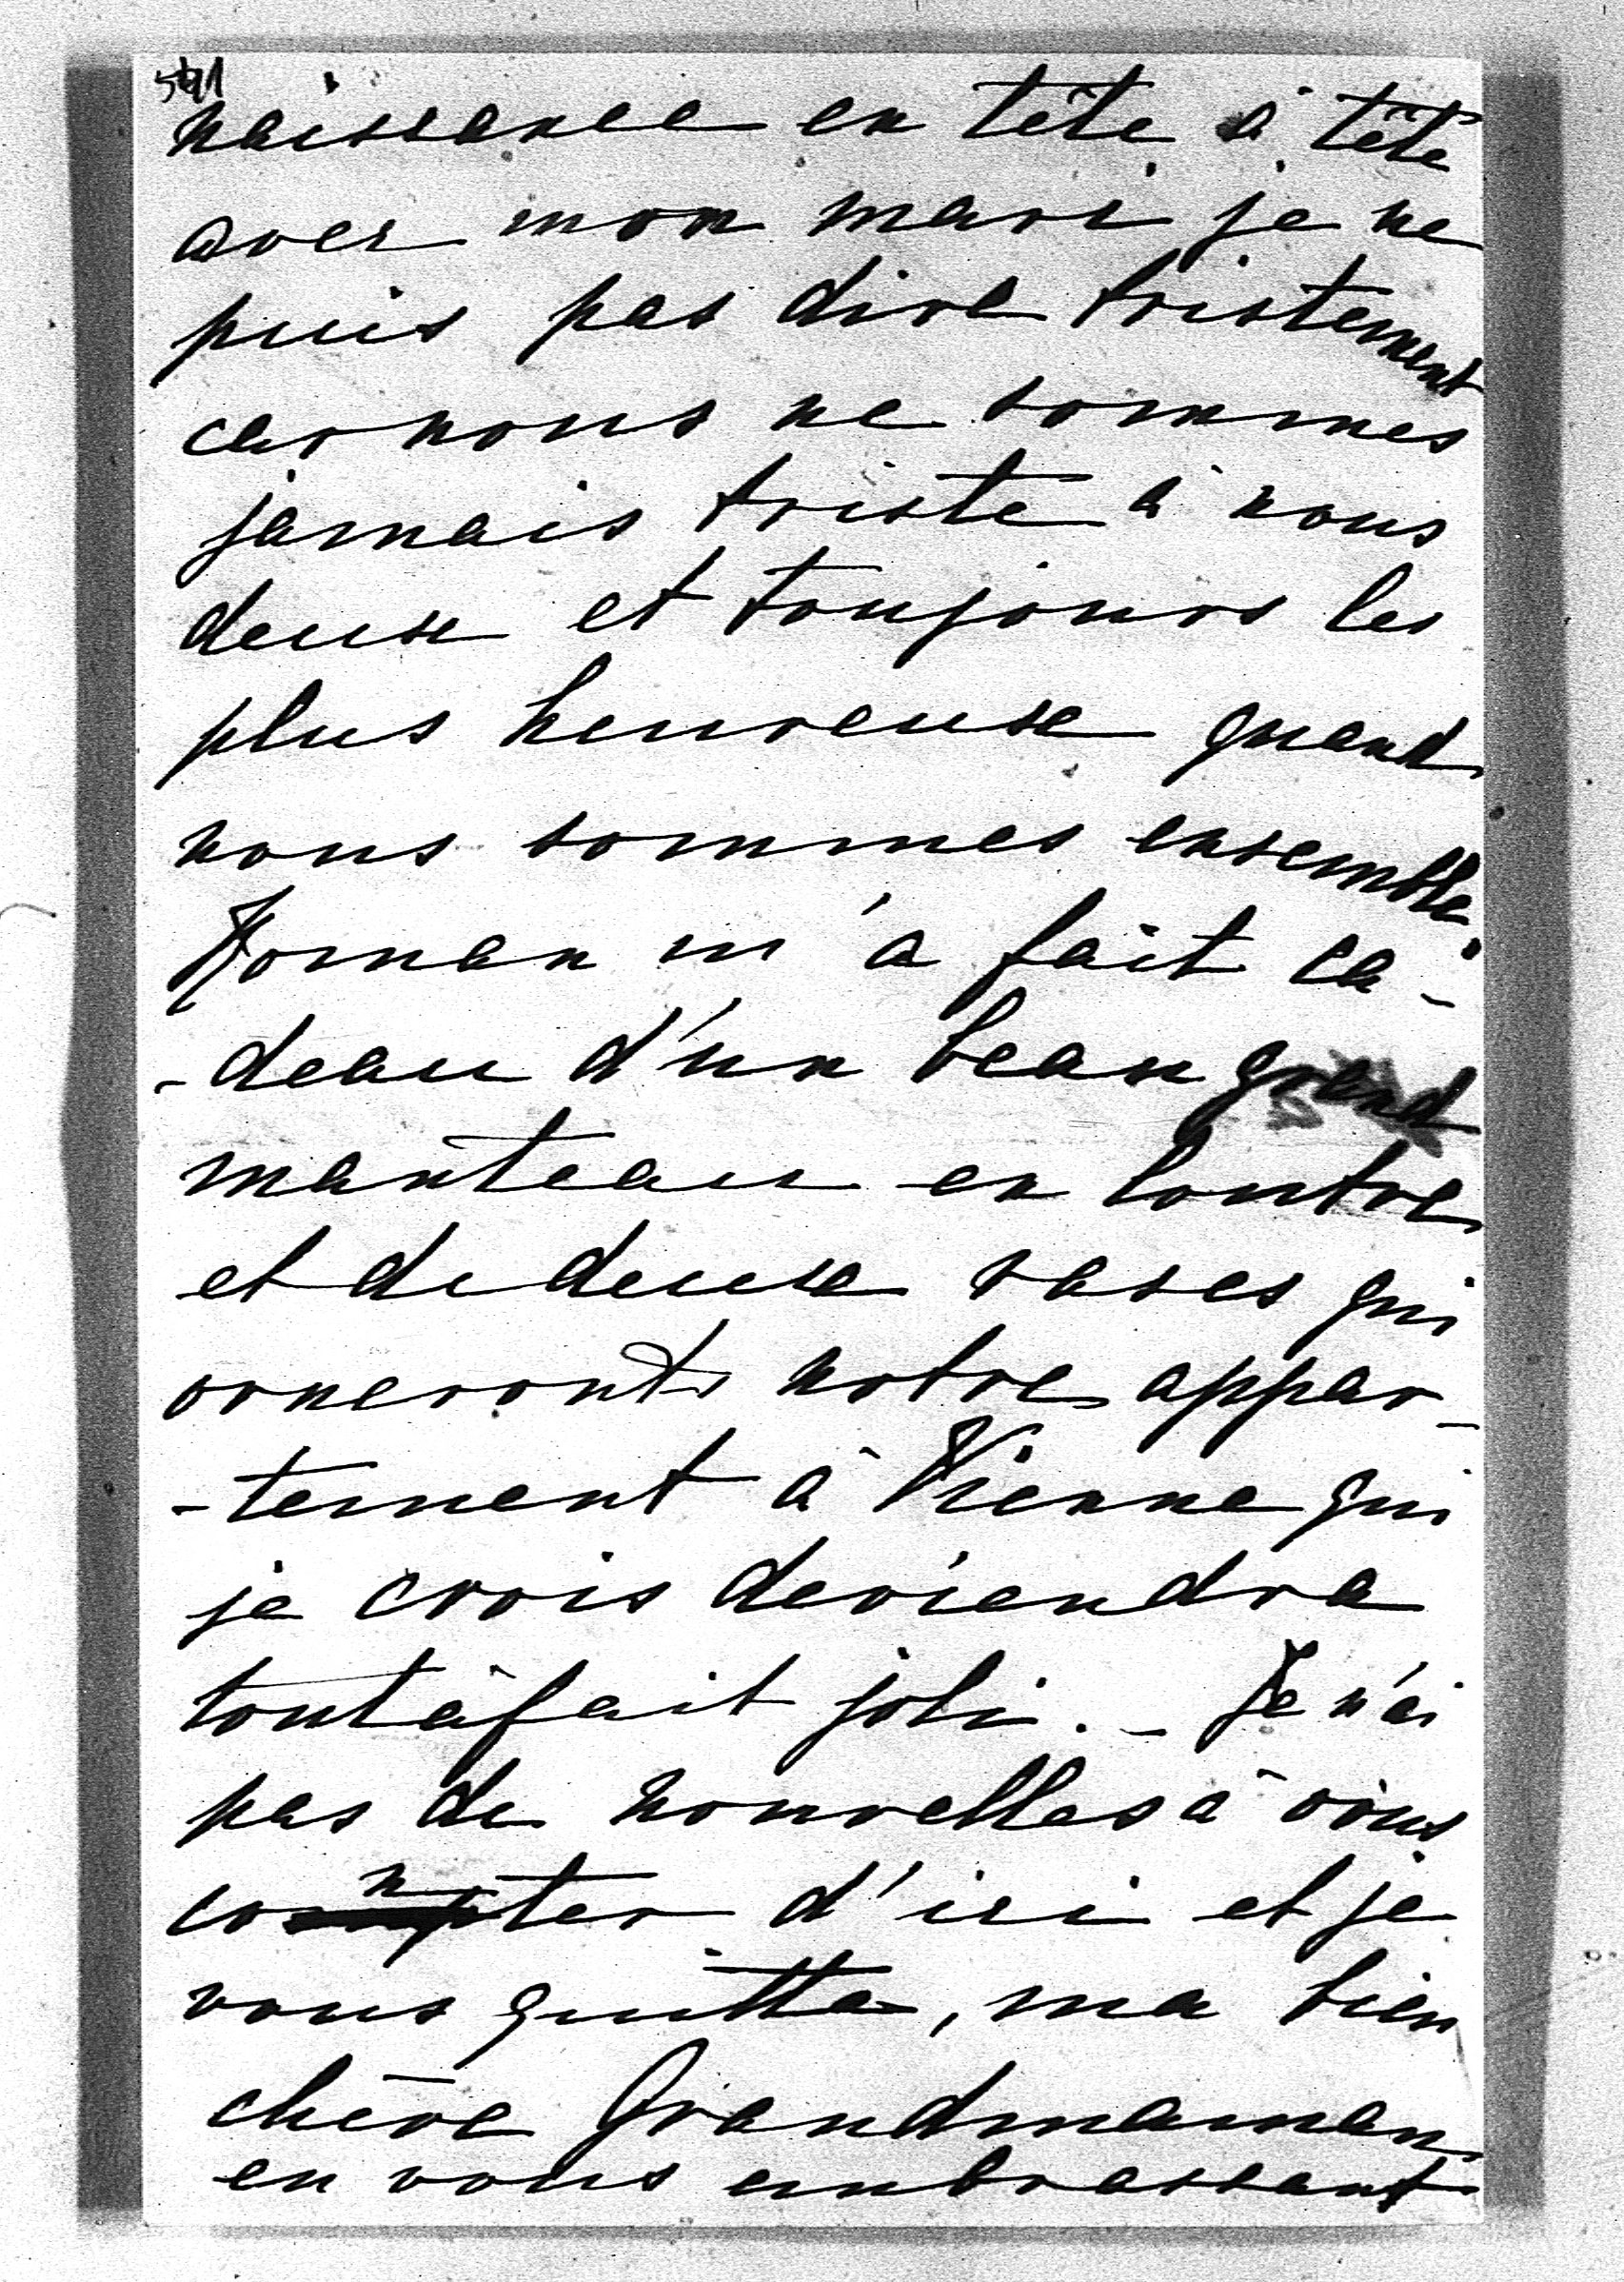 naissance en tête à tête
avec mon mari je ne
puis pas dire tristement
car nous ne sommes
jamais triste à nous
deux et toujours les
plus heureuse quand
nous sommes ensemble.
Roman m'a fait ca-
-deau d'un beau grand
manteau en loutre
et de deux vases qui
orneront notre appar-
-tement à Vienne qui
je crois deviendra
toutàfait joli. - Je n'ai
pas de nouvelles à vous
conter d'ici et je
vous quitte, ma bien
chère Grandmaman
en vous embrassant